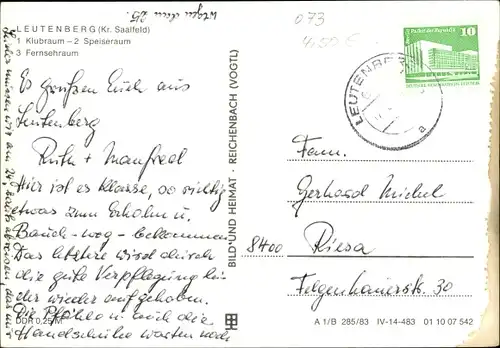 LEUTENBERG (Kr. Saalfeld)
1 Klubraum – 2 Speiseraum
3 Fernsehraum
Es grüßen Euch aus
Leutenberg
Ruth + Manfred
Hier ist es klasse, so richtig
etwas zum Erholen u.
Bauch-weg-bekommen
Das letztere wird durch
die gute Verpflegung lei-
der wieder aufgehoben.
Die Pfähle u. auch die
Handschuhe warten noch
Leider müssen wir am 26.
wegen dem 25.
DDR 0,25 M
BILD UND HEIMAT · REICHENBACH (VOGTL)
073
LEUTENBERG
a
10
Palast der Republik
Fam.
Gerhard Michel
8400 Riesa
Felgenhauerstr. 30
A 1/B 285/83 IV-14-483 01 10 07 542